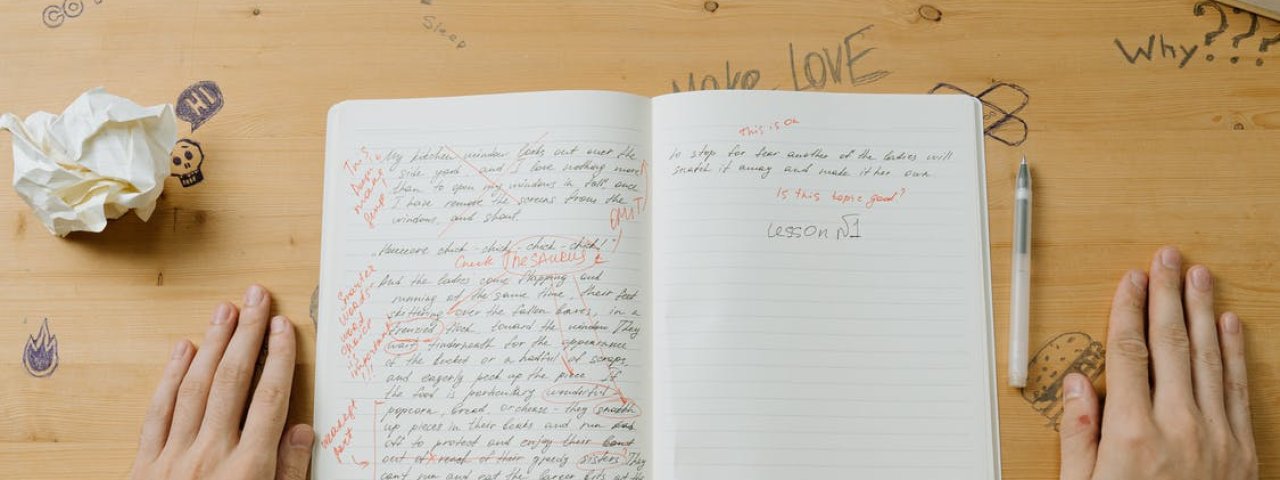 Sleep
MAKE LOVE
Why???
HI
This
My kitchen window looks out over the
side yard and I love nothing more
than to open my windows in fall once
I have remove the screens from the
windows, and shout
OMIT
chick-chick-chick-chick!"
Check THESAURUS
And the ladies come flapping and
running at the same time, their feet
chittering over the fallen leaves, in a
frenzied flock toward the window They
wait underneath for the appearance
of the bucket or a handful of scraps,
and eagerly peck up the piece If
the food is particulary wonderful
popcorn, bread, or cheese - they snatch
up pieces in their beaks and run
off to protect and enjoy their
out of reach of their greedy sisters? They
can't run and eat the larger bits at the
Smarter
words-
word
choice
important
!!!
part
this is ok
to stop for fear another of the ladies will
snatch it away and make it her own
Is this topic good?
Lesson №1